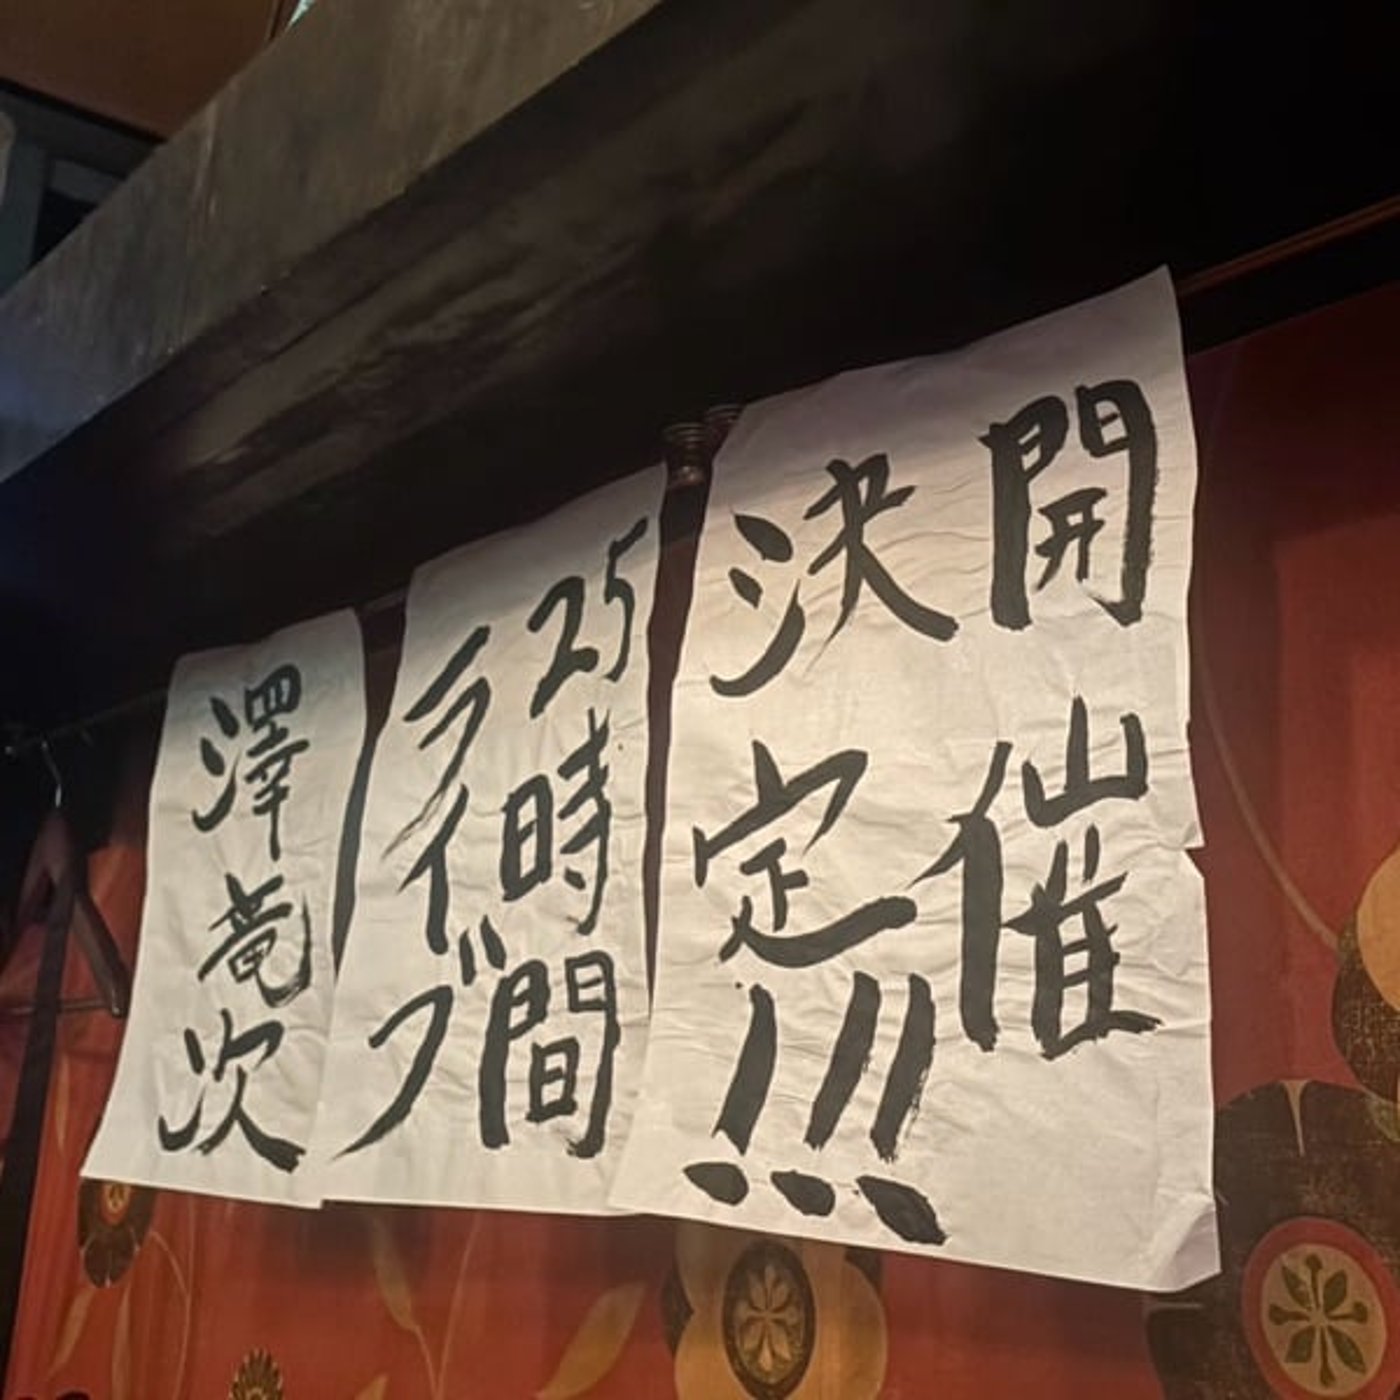 開催
決定!!!
25時間
ライブ
澤竜次